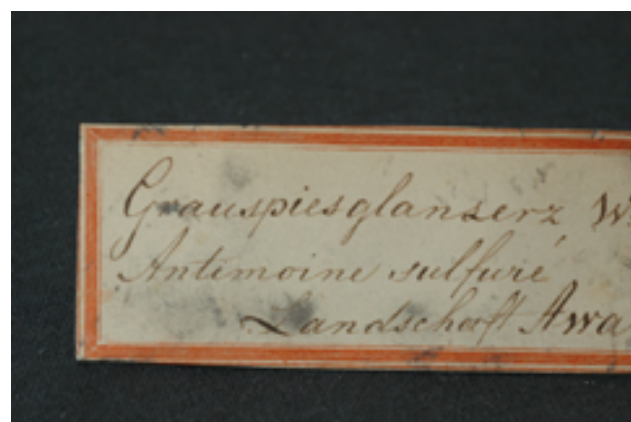 Grauspiesglanserz, W.
Antimoine sulfuré
Landschaft Awa